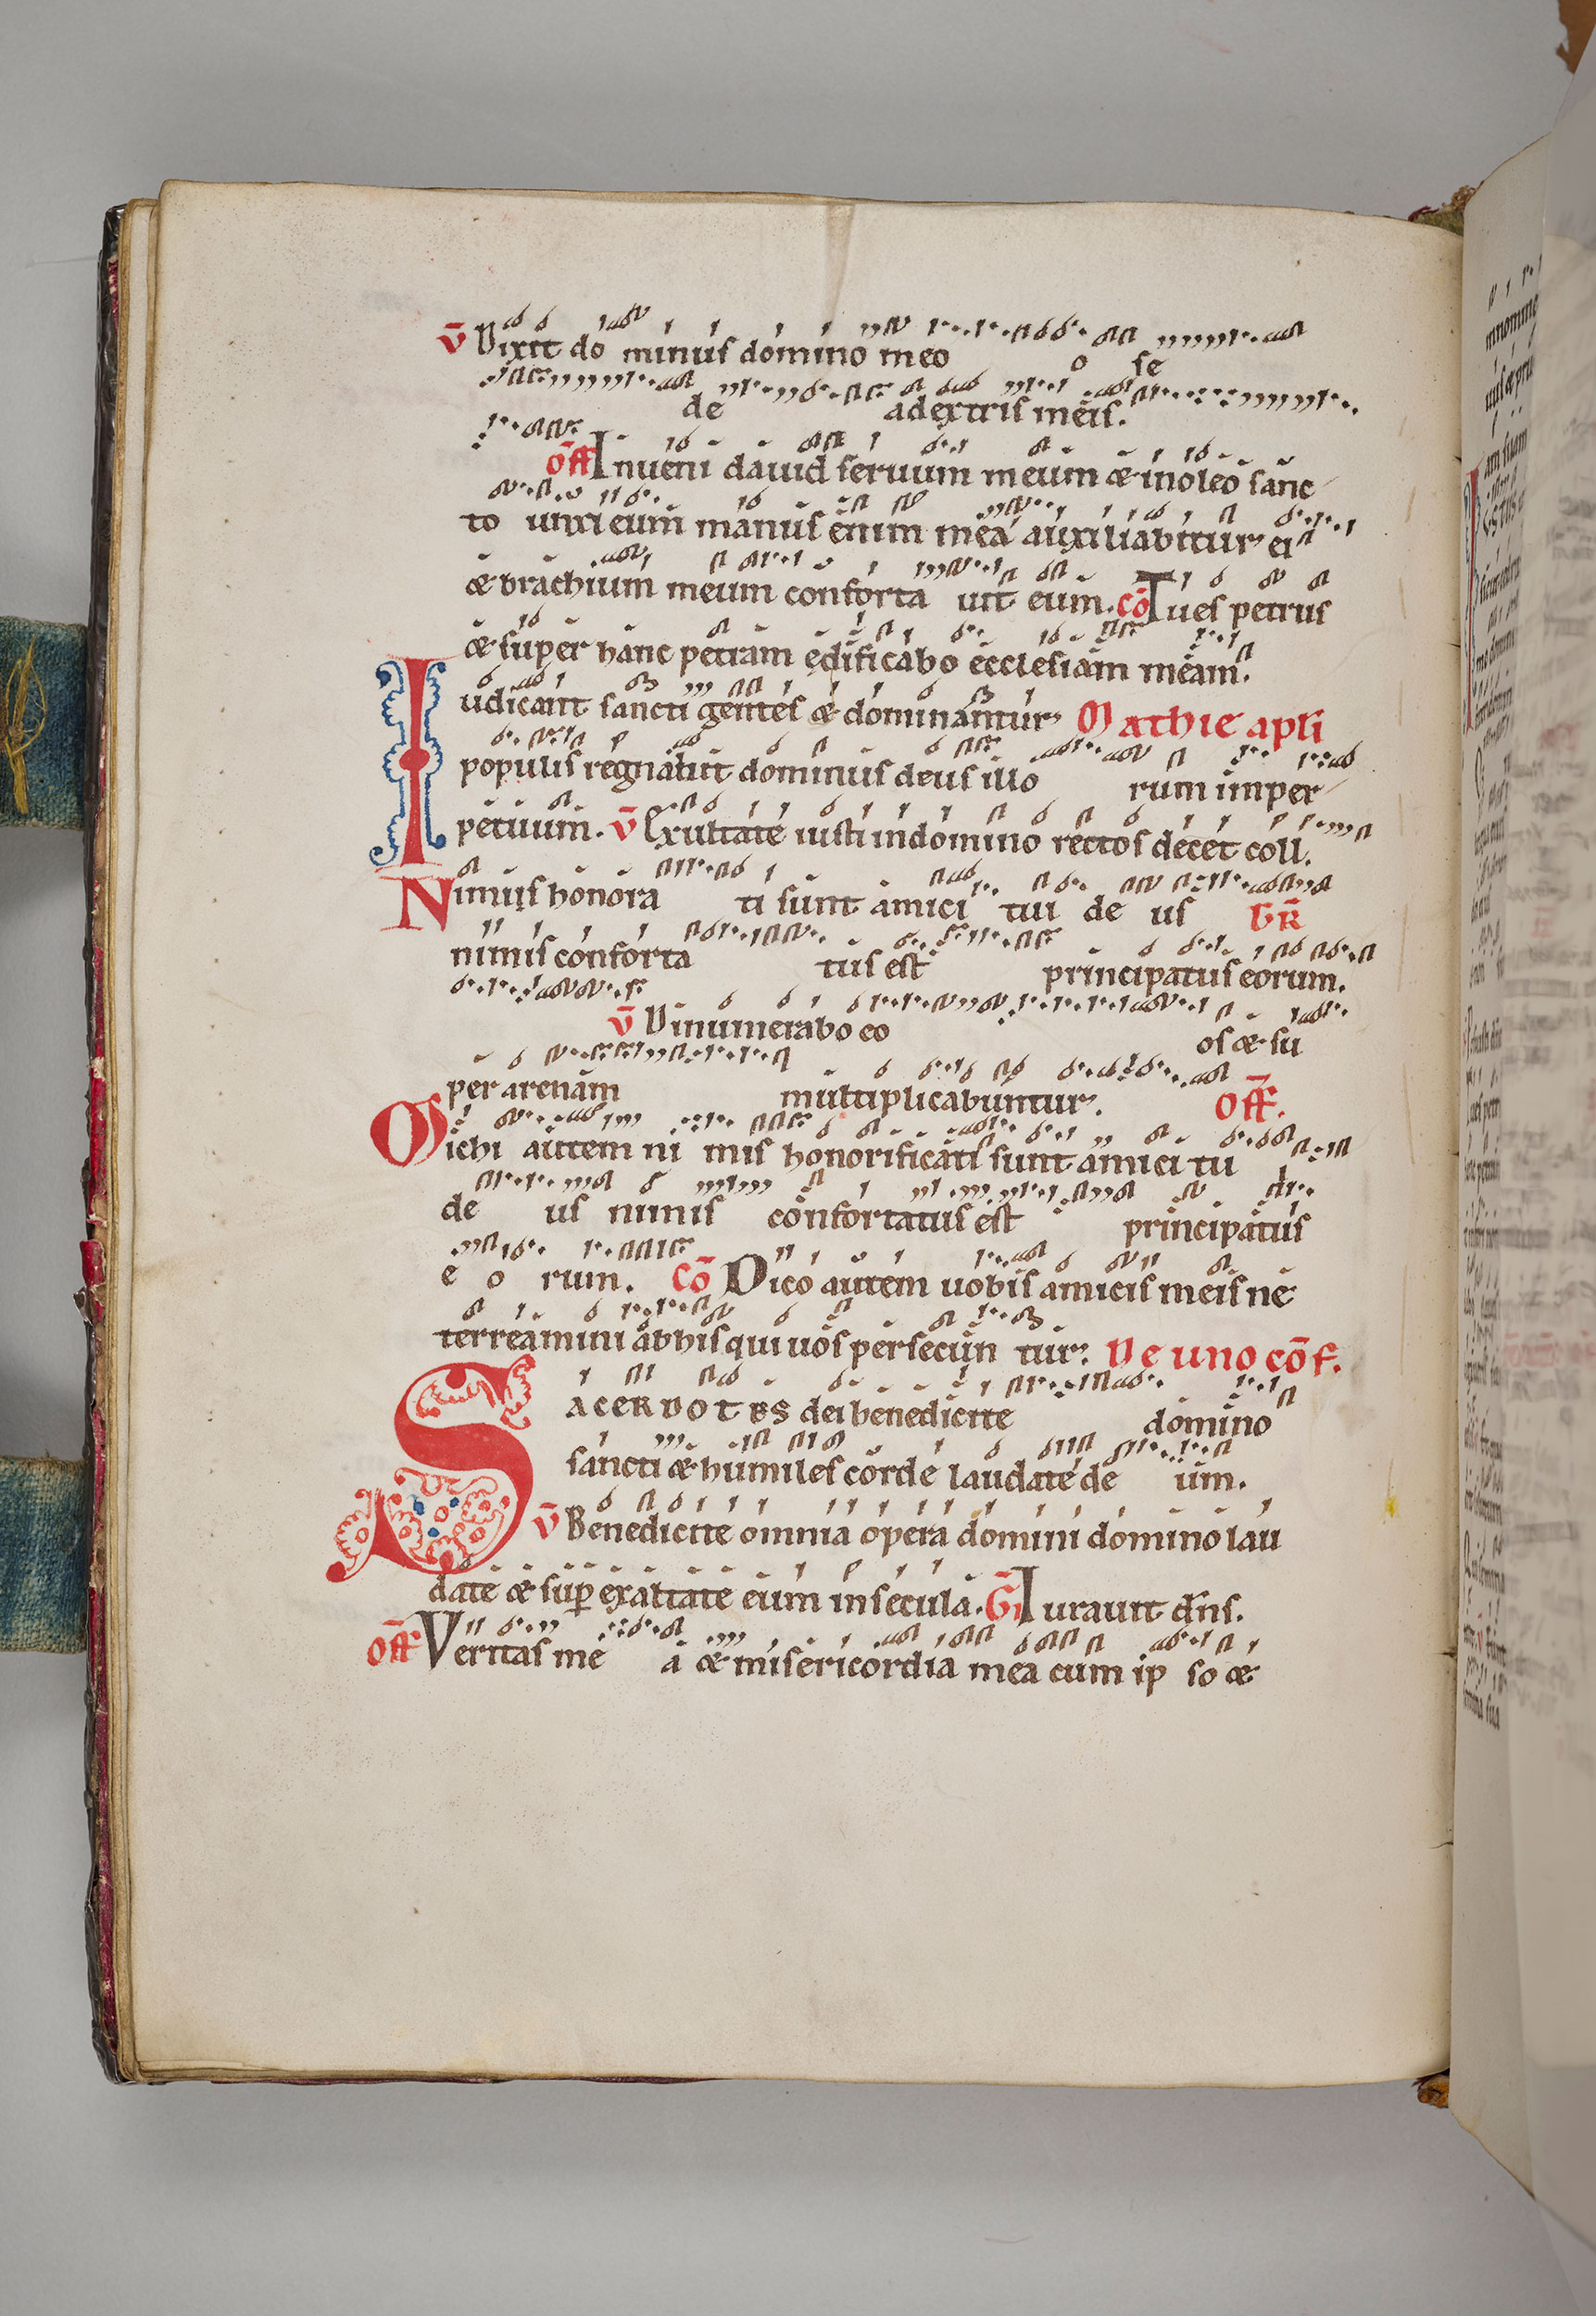 v̄ Dixit do minus domino meo o se
de adextris meis.
off̄ Inueni dauid seruum meum & inoleo sanc
to unxi eum manus enim mea auxiliabitur ei
& brachium meum conforta uit eum. cō Tu es petrus
& super hanc petram edificabo ecclesiam meam.
Iudicant sancti gentes & dominantur Mathie apłi
populis regnabit dominus deus illo rum imper
petuum. v̄ Exultate iusti indomino rectos decet coll.
Nimis honora ti sunt amici tui de us GR̄
nimis conforta tus est principatus eorum.
v̄ Dinumerabo eo os & su
per arenam multiplicabuntur. Off̄.
Michi autem ni mis honorificati sunt amici tu
de us nimis confortatus est principatus
e o rum. Cō Dico autem uobis amicis meis ne
terreamini abhis qui uos persecun tur. De uno cōf.
SACERDOTES dei benedicite domino
sancti & humiles corde laudate de um.
v̄ Benedicite omnia opera domini domino lau
date & sup̄ exaltate eum insecula. Ḡ Iurauit dn̄s.
off̄ Veritas me a & misericordia mea cum ip so &